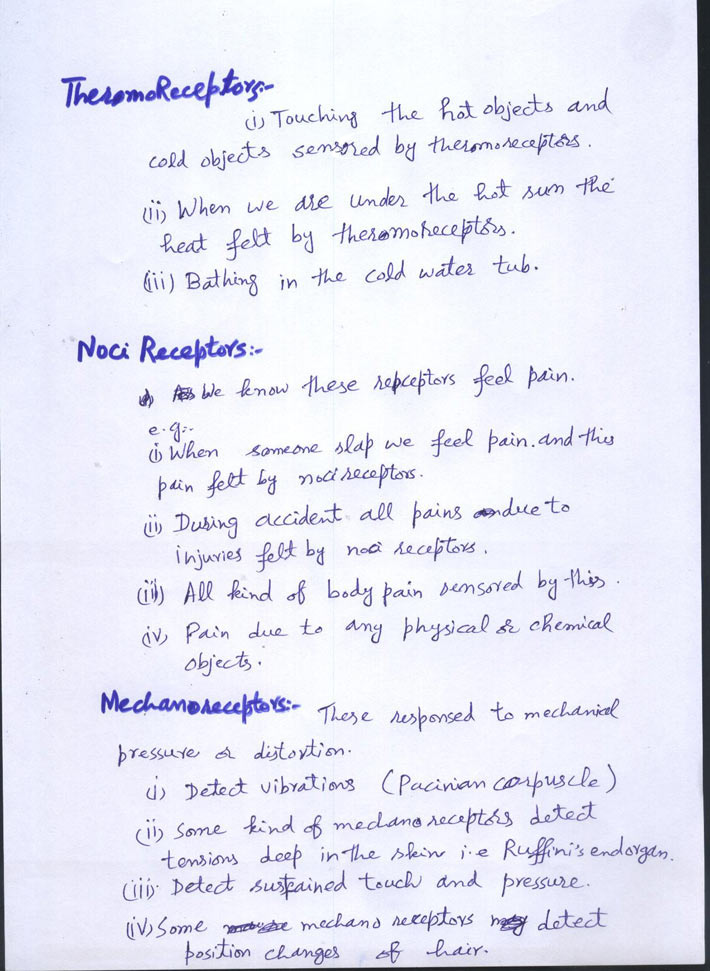 ThermoReceptors:-
(i) Touching the hot objects and
cold objects sensored by thermoreceptors.
(ii) When we are under the hot sun the
heat felt by thermoreceptors.
(iii) Bathing in the cold water tub.
Noci Receptors:-
We know these repceptors feel pain.
e.g:-
(i) When someone slap we feel pain. and this
pain felt by noci receptors.
(ii) During accident all pains due to
injuries felt by noci receptors.
(iii) All kind of body pain sensored by this.
(iv) Pain due to any physical or chemical
objects.
Mechanoreceptors:- These responsed to mechanical
pressure or distortion.
(i) Detect vibrations (Pacinian corpuscle)
(ii) Some kind of mechano receptors detect
tensions deep in the skin i.e Ruffini's endorgan.
(iii) Detect sustained touch and pressure.
(iv) Some mechano receptors detect
position changes of hair.